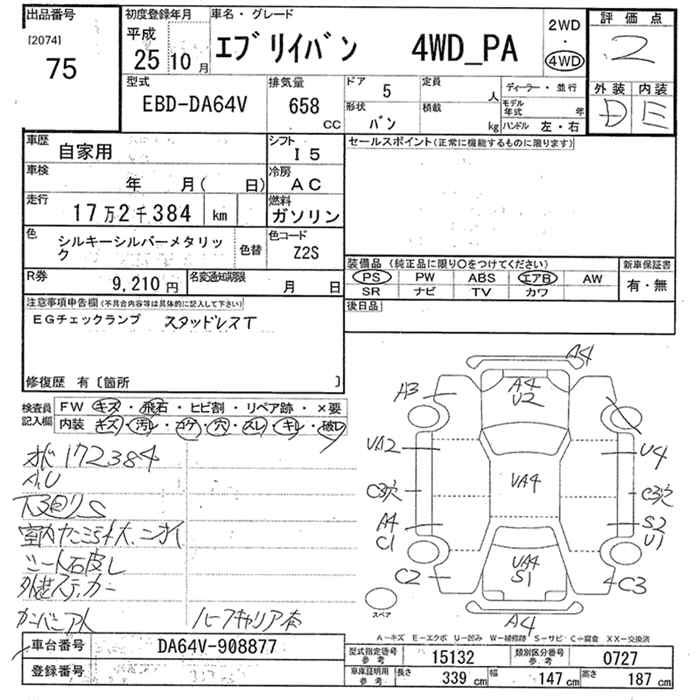 出品番号
[2074]
75
初度登録年月
平成
25 10月
車名・グレード
エブリイバン 4WD_PA
2WD
・
4WD
評価点
2
外装 内装
D E
型式
EBD-DA64V
排気量
658
CC
ドア
5
形状
バン
定員
人
積載
kg
ディーラー・並行
モデル年式 年
ハンドル 左・右
車歴
自家用
シフト
I5
車検
年 月( 日)
冷房
AC
走行
17万2千384 km
燃料
ガソリン
色
シルキーシルバーメタリック
色替
色コード
Z2S
R券
9,210円
名変通知期限
月 日
セールスポイント(正常に機能するものに限ります)
装備品(純正品に限り〇をつけてください)
PS PW ABS エアB AW
SR ナビ TV カワ
新車保証書
有・無
後日品
注意事項申告欄(不具合内容等は具体的に記入して下さい)
EGチェックランプ スタッドレスT
修復歴 有〔箇所 〕
検査員記入欄
FW キズ・飛石・ヒビ割・リペア跡・×要
内装 キズ・汚レ・コゲ・穴・スレ・キレ・破レ
ボ172384
小U
下廻りS
シート石皮し
外装ステッカー
ハーフキャリア有
A4
A3
A4
U2
UA2
U4
C3穴
UA4
C3穴
A4
S2
C1
U1
UA4
S1
C2
C3
A4
スペア
A-キズ E-エクボ U-凹み W-補修跡 S-サビ C-腐食 XX-交換済
車台番号
DA64V-908877
登録番号
型式指定番号
参考
15132
類別区分番号
参考
0727
車庫証明用
参考
長さ
339 cm
幅
147 cm
高さ
187 cm